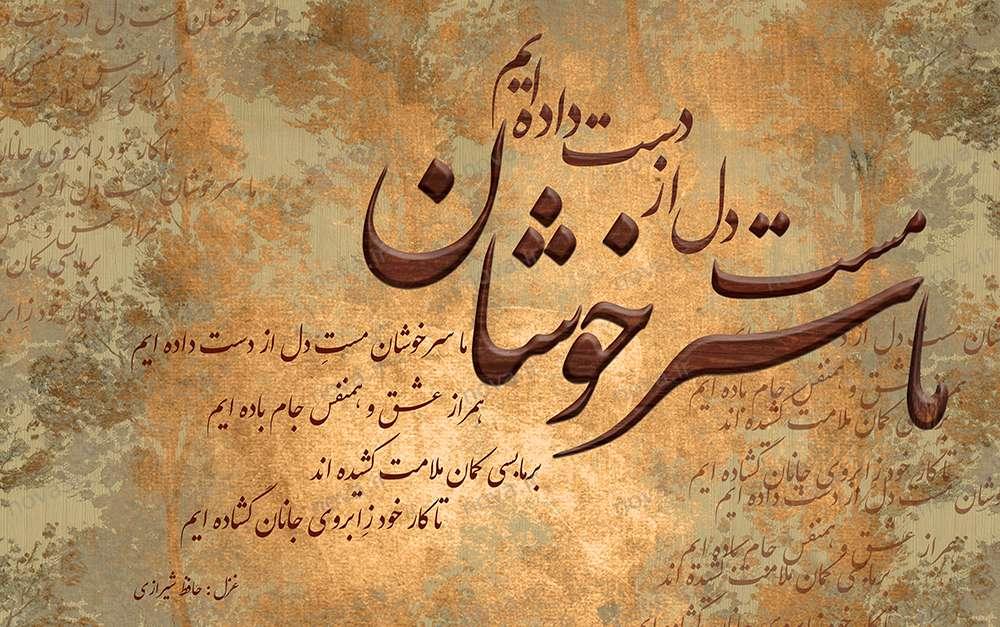 ما سرخوشان مست دل از دست داده ایم
ما سرخوشان مستِ دل از دست داده ایم
همراز عشق و همنفس جام باده ایم
بر ما بسی کمان ملامت کشیده اند
تا کار خود زِ ابروی جانان گشاده ایم
غزل : حافظ شیرازی